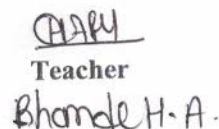 Teacher
Bhomde H.A.